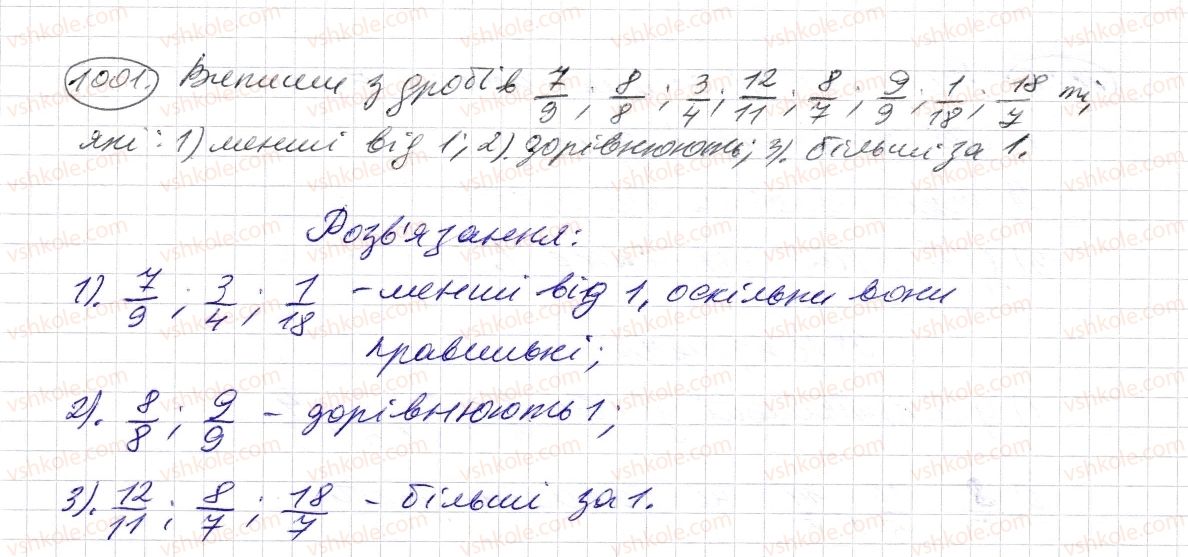 1001. Випиши з дробів 7/9; 8/8; 3/4; 12/11; 8/7; 9/9; 1/18; 18/7 ті,
які: 1) менші від 1; 2). дорівнюють; 3). більші за 1.
Розв'язання:
1). 7/9; 3/4; 1/18 - менші від 1, оскільки вони
правильні;
2). 8/8; 9/9 - дорівнюють 1;
3). 12/11; 8/7; 18/7 - більші за 1.
vshkole.com